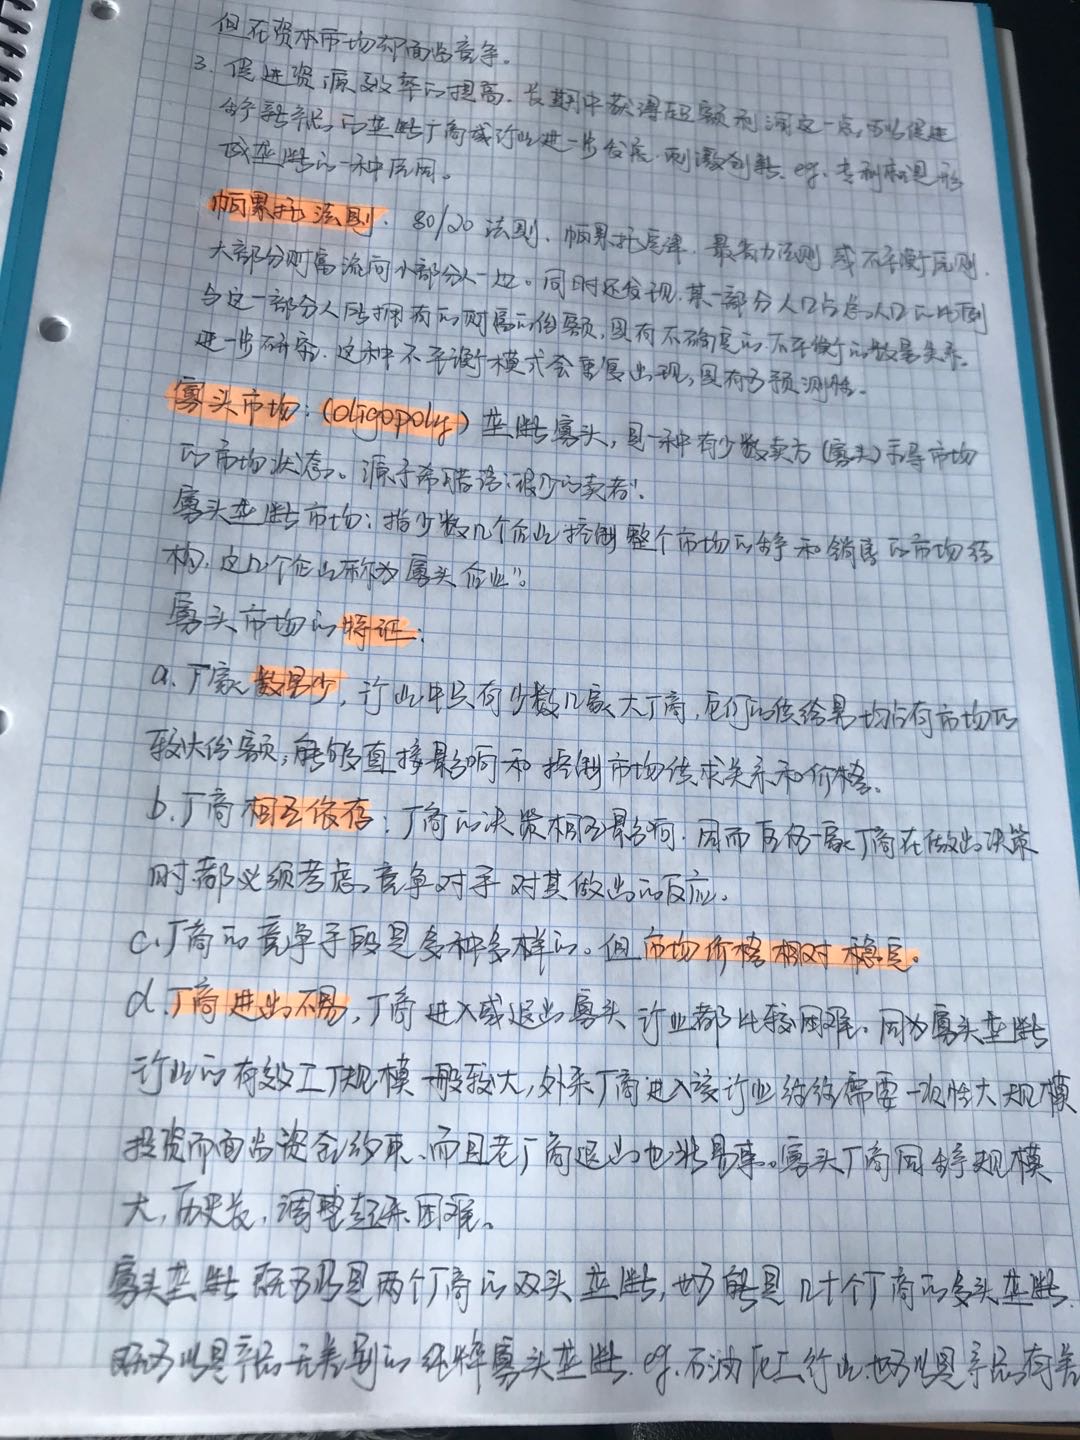 但在资本市场却面临竞争。
3. 促进资源效率的提高. 长期中获得超额利润这一点, 可以促进
生产新产品的垄断厂商或行业进一步发展. 刺激创新. eg. 专利就是形
成垄断的一种原因。
帕累托法则. 80/20 法则、帕累托定律. 最省力法则 或 不平衡原则.
大部分财富流向小部分人一边。同时还发现. 某一部分人口占总人口的比例
与这一部分人所拥有的财富的份额, 具有不确定的. 不平衡的数量关系.
进一步研究, 这种不平衡模式会重复出现, 具有可预测性。
寡头市场: (oligopoly) 垄断寡头, 是一种有少数卖方 (寡头) 主导市场
的市场状态。源于希腊语: “很少的卖者”.
寡头垄断市场: 指少数几个企业控制整个市场的生产和销售的市场结
构. 这几个企业称为“寡头企业”。
寡头市场的特征:
a. 厂家数量少, 行业中只有少数几家大厂商, 它们的供给量均占有市场的
较大份额, 能够直接影响和控制市场供求关系和价格。
b. 厂商相互依存: 厂商的决策相互影响. 因而任何一家厂商在做出决策
时都必须考虑竞争对手对其做出的反应。
c. 厂商的竞争手段是多种多样的。但市场价格相对稳定。
d. 厂商进出不易, 厂商进入或退出寡头行业都比较困难. 因为寡头垄断
行业的有效工厂规模一般较大, 外来厂商进入该行业往往需要一次性大规模
投资而面临资金约束、而且老厂商退出也非易事。寡头厂商因生产规模
大, 历史长, 调整起来困难。
寡头垄断既可以是两个厂商的双头垄断, 也可能是几十个厂商的多头垄断.
既可以是产品无差别的纯粹寡头垄断. eg. 石油化工行业. 也可以是产品有差